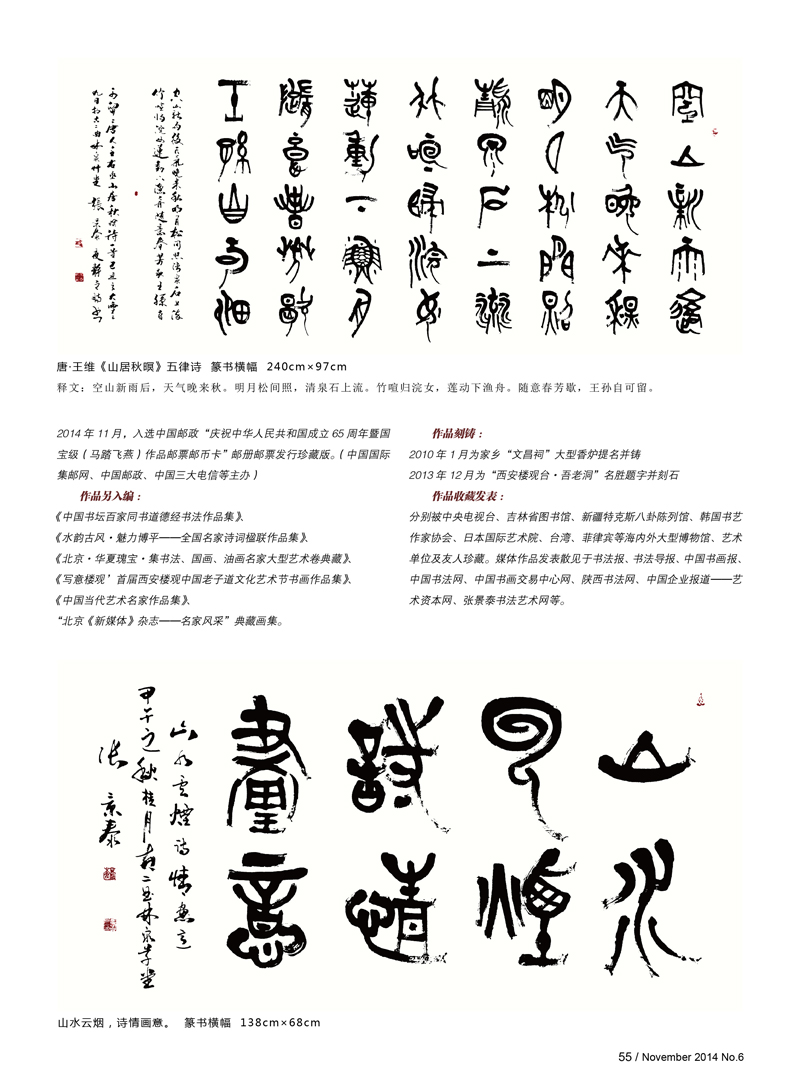 空山新雨後
天气晚來秋
明月松間照
清泉石上流
竹喧歸浣女
蓮動下漁舟
隨意春芳歇
王孫自可留
唐·王维《山居秋暝》五律诗 篆书横幅 240cm×97cm
释文：空山新雨后，天气晚来秋。明月松间照，清泉石上流。竹喧归浣女，莲动下渔舟。随意春芳歇，王孙自可留。
2014年11月，入选中国邮政“庆祝中华人民共和国成立65周年暨国
宝级（马踏飞燕）作品邮票邮币卡”邮册邮票发行珍藏版。（中国国际
集邮网、中国邮政、中国三大电信等主办）
作品另入编：
《中国书坛百家同书道德经书法作品集》、
《水韵古风·魅力博平——全国名家诗词楹联作品集》、
《北京·华夏瑰宝·集书法、国画、油画名家大型艺术卷典藏》、
《写意楼观’首届西安楼观中国老子道文化艺术节书画作品集》、
《中国当代艺术名家作品集》、
“北京《新媒体》杂志——名家风采”典藏画集。
作品刻铸：
2010年1月为家乡“文昌祠”大型香炉提名并铸
2013年12月为“西安楼观台·吾老洞”名胜题字并刻石
作品收藏发表：
分别被中央电视台、吉林省图书馆、新疆特克斯八卦陈列馆、韩国书艺
作家协会、日本国际艺术院、台湾、菲律宾等海内外大型博物馆、艺术
单位及友人珍藏。媒体作品发表散见于书法报、书法导报、中国书画报、
中国书法网、中国书画交易中心网、陕西书法网、中国企业报道——艺
术资本网、张景泰书法艺术网等。
山水
云煙
詩情
畫意
山水云煙诗情画意
甲午之秋桂月
张景泰
山水云烟，诗情画意。 篆书横幅 138cm×68cm
55 / November 2014 No.6